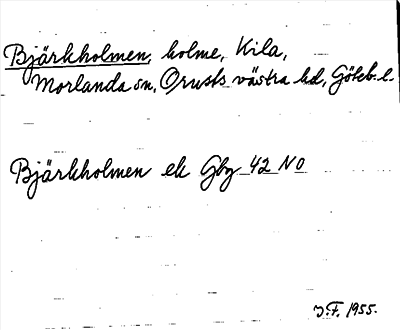 Bjärkholmen, holme, Kila,
Morlanda sn, Orusts västra hd, Göteb. l.
Bjärkholmen ek Gbg 42 NO
J.F. 1955.